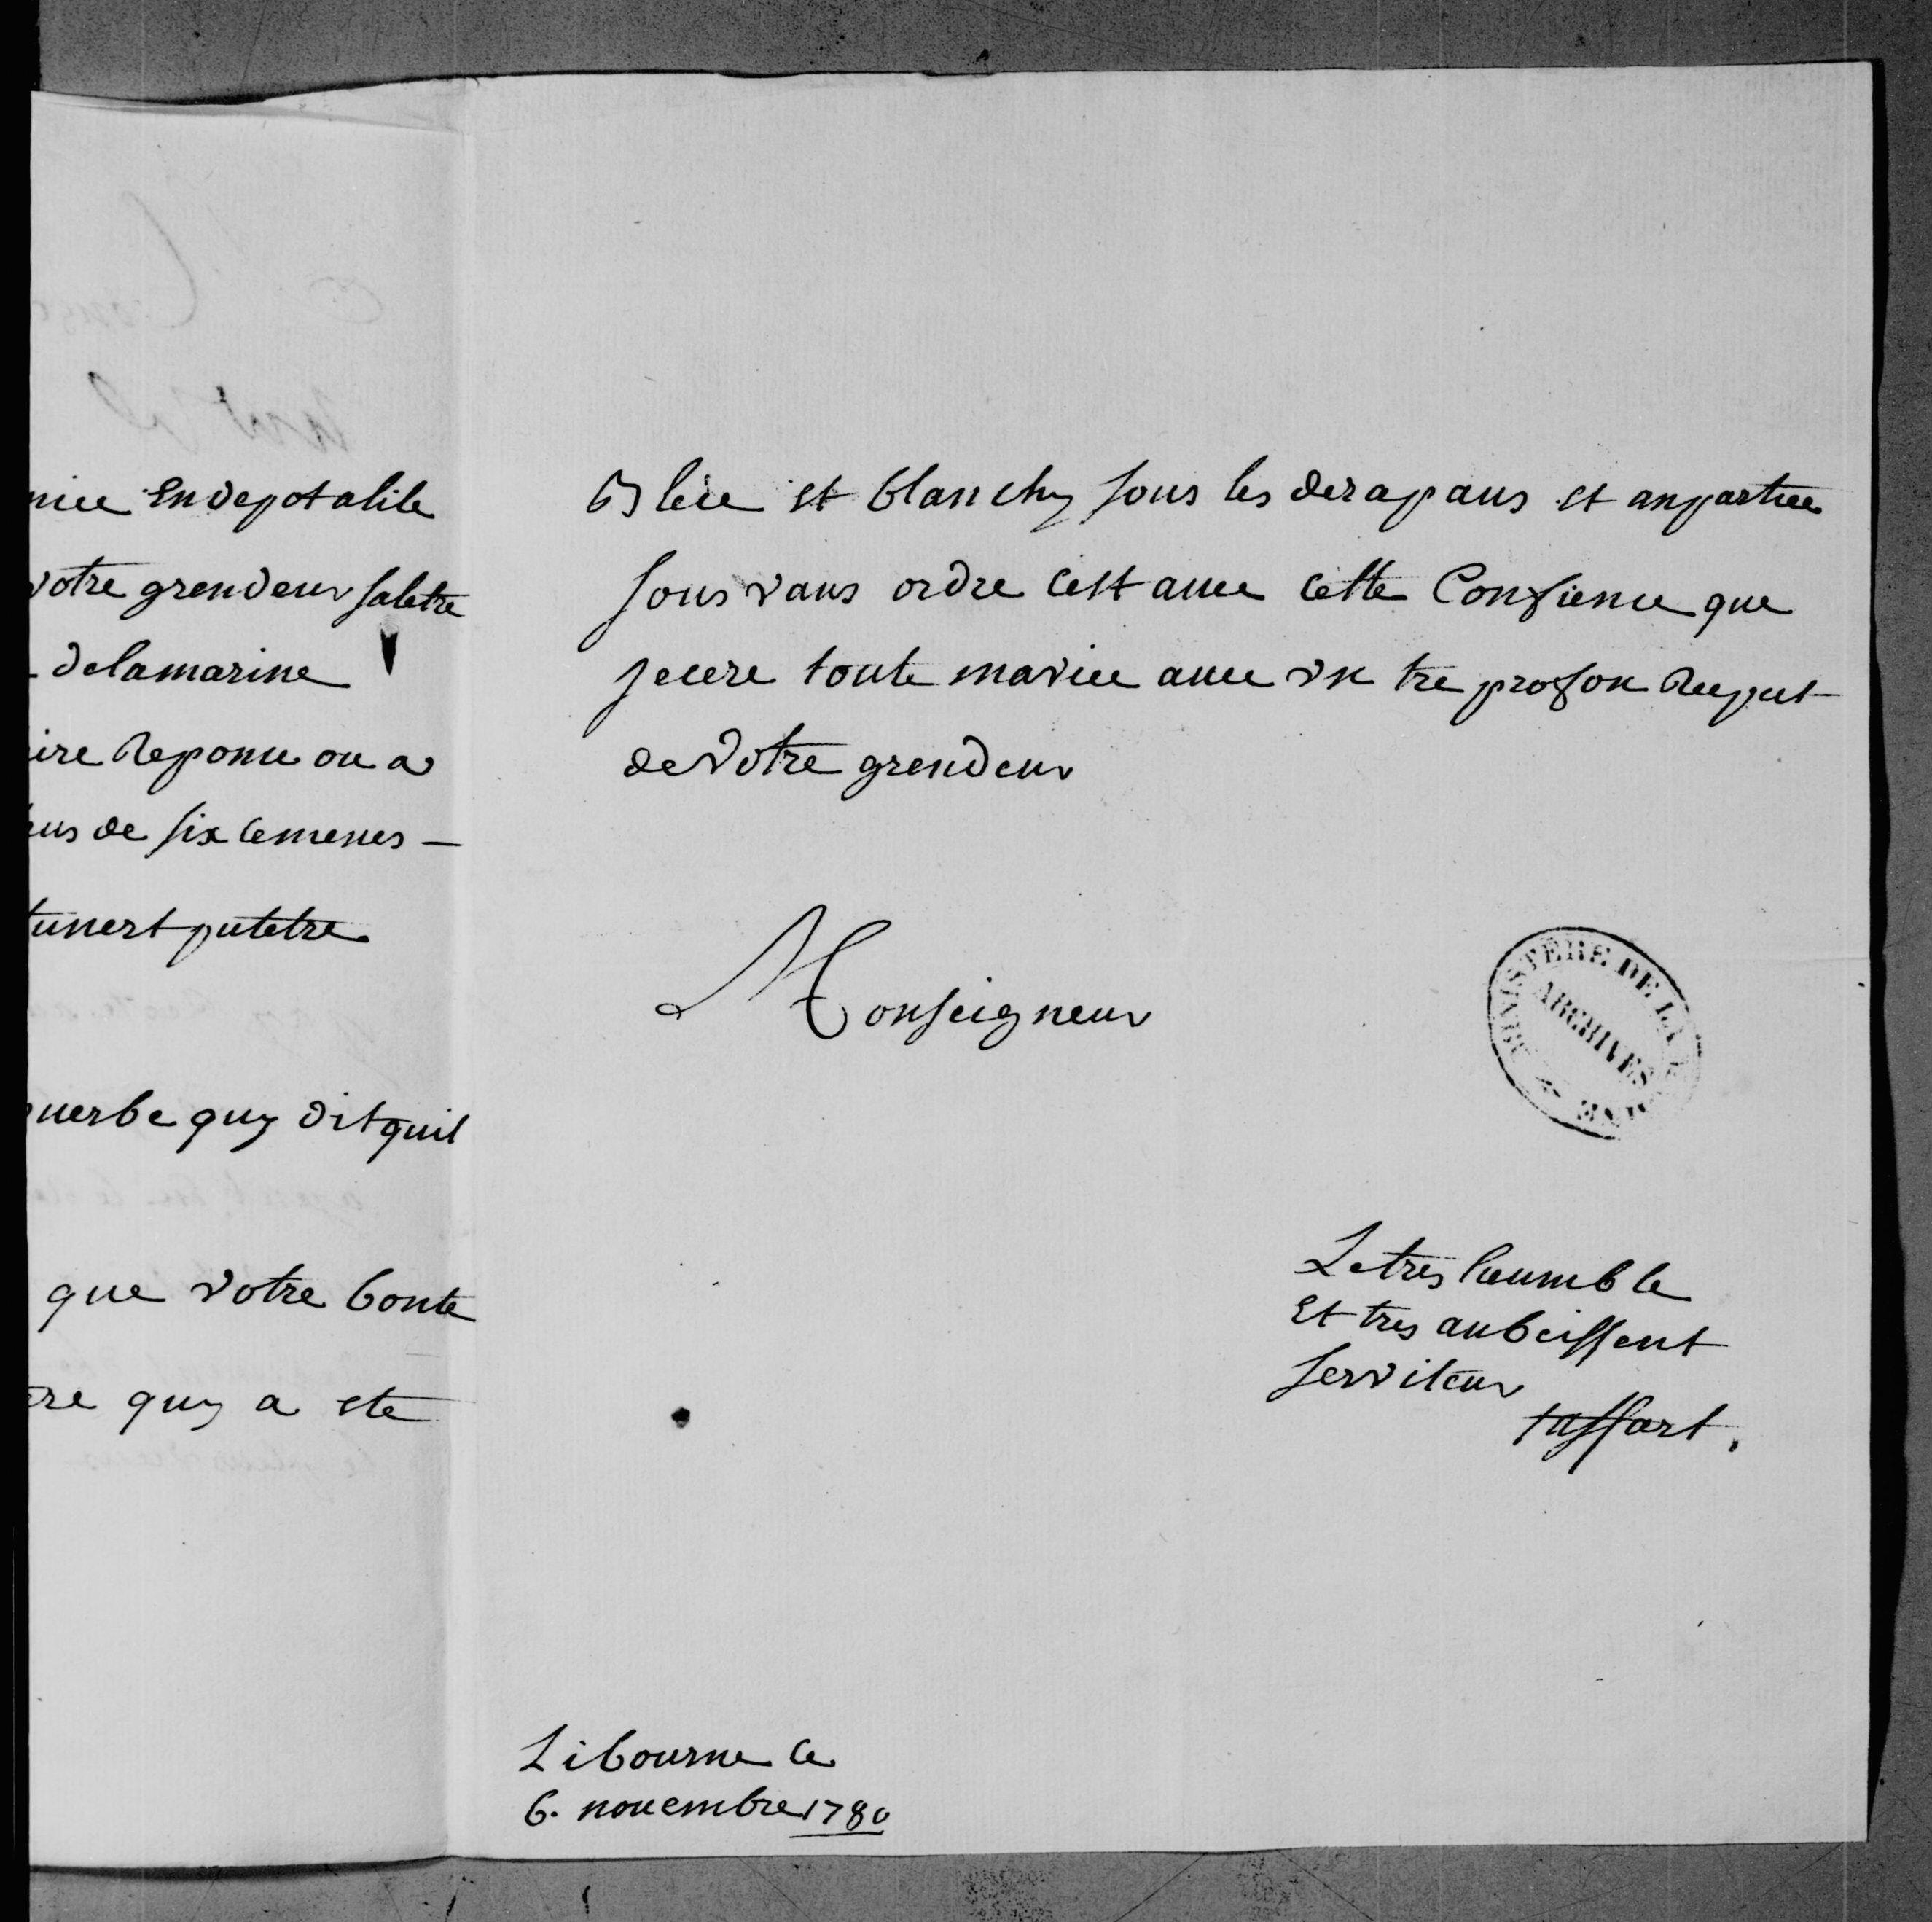 nice en depot alile
votre grendeur saletre
delamarine
ire reponce ou a
us de six cemenes —
tunert putetre
uerbe quy dit quil
que votre bonte
re quy a ete
et blanchy sous les derapaus et anpartiee
sous vaus ordre cest avec cette Confience que
jecere toute maviee avec un tre profon Recpect
de Votre grendeur
Monseigneur
MINISTÈRE DE LA MARINE
ARCHIVES
Le tres heumble
Et tres aubeissent
serviteur
taffart.
Libourne ce
6. novembre 1780